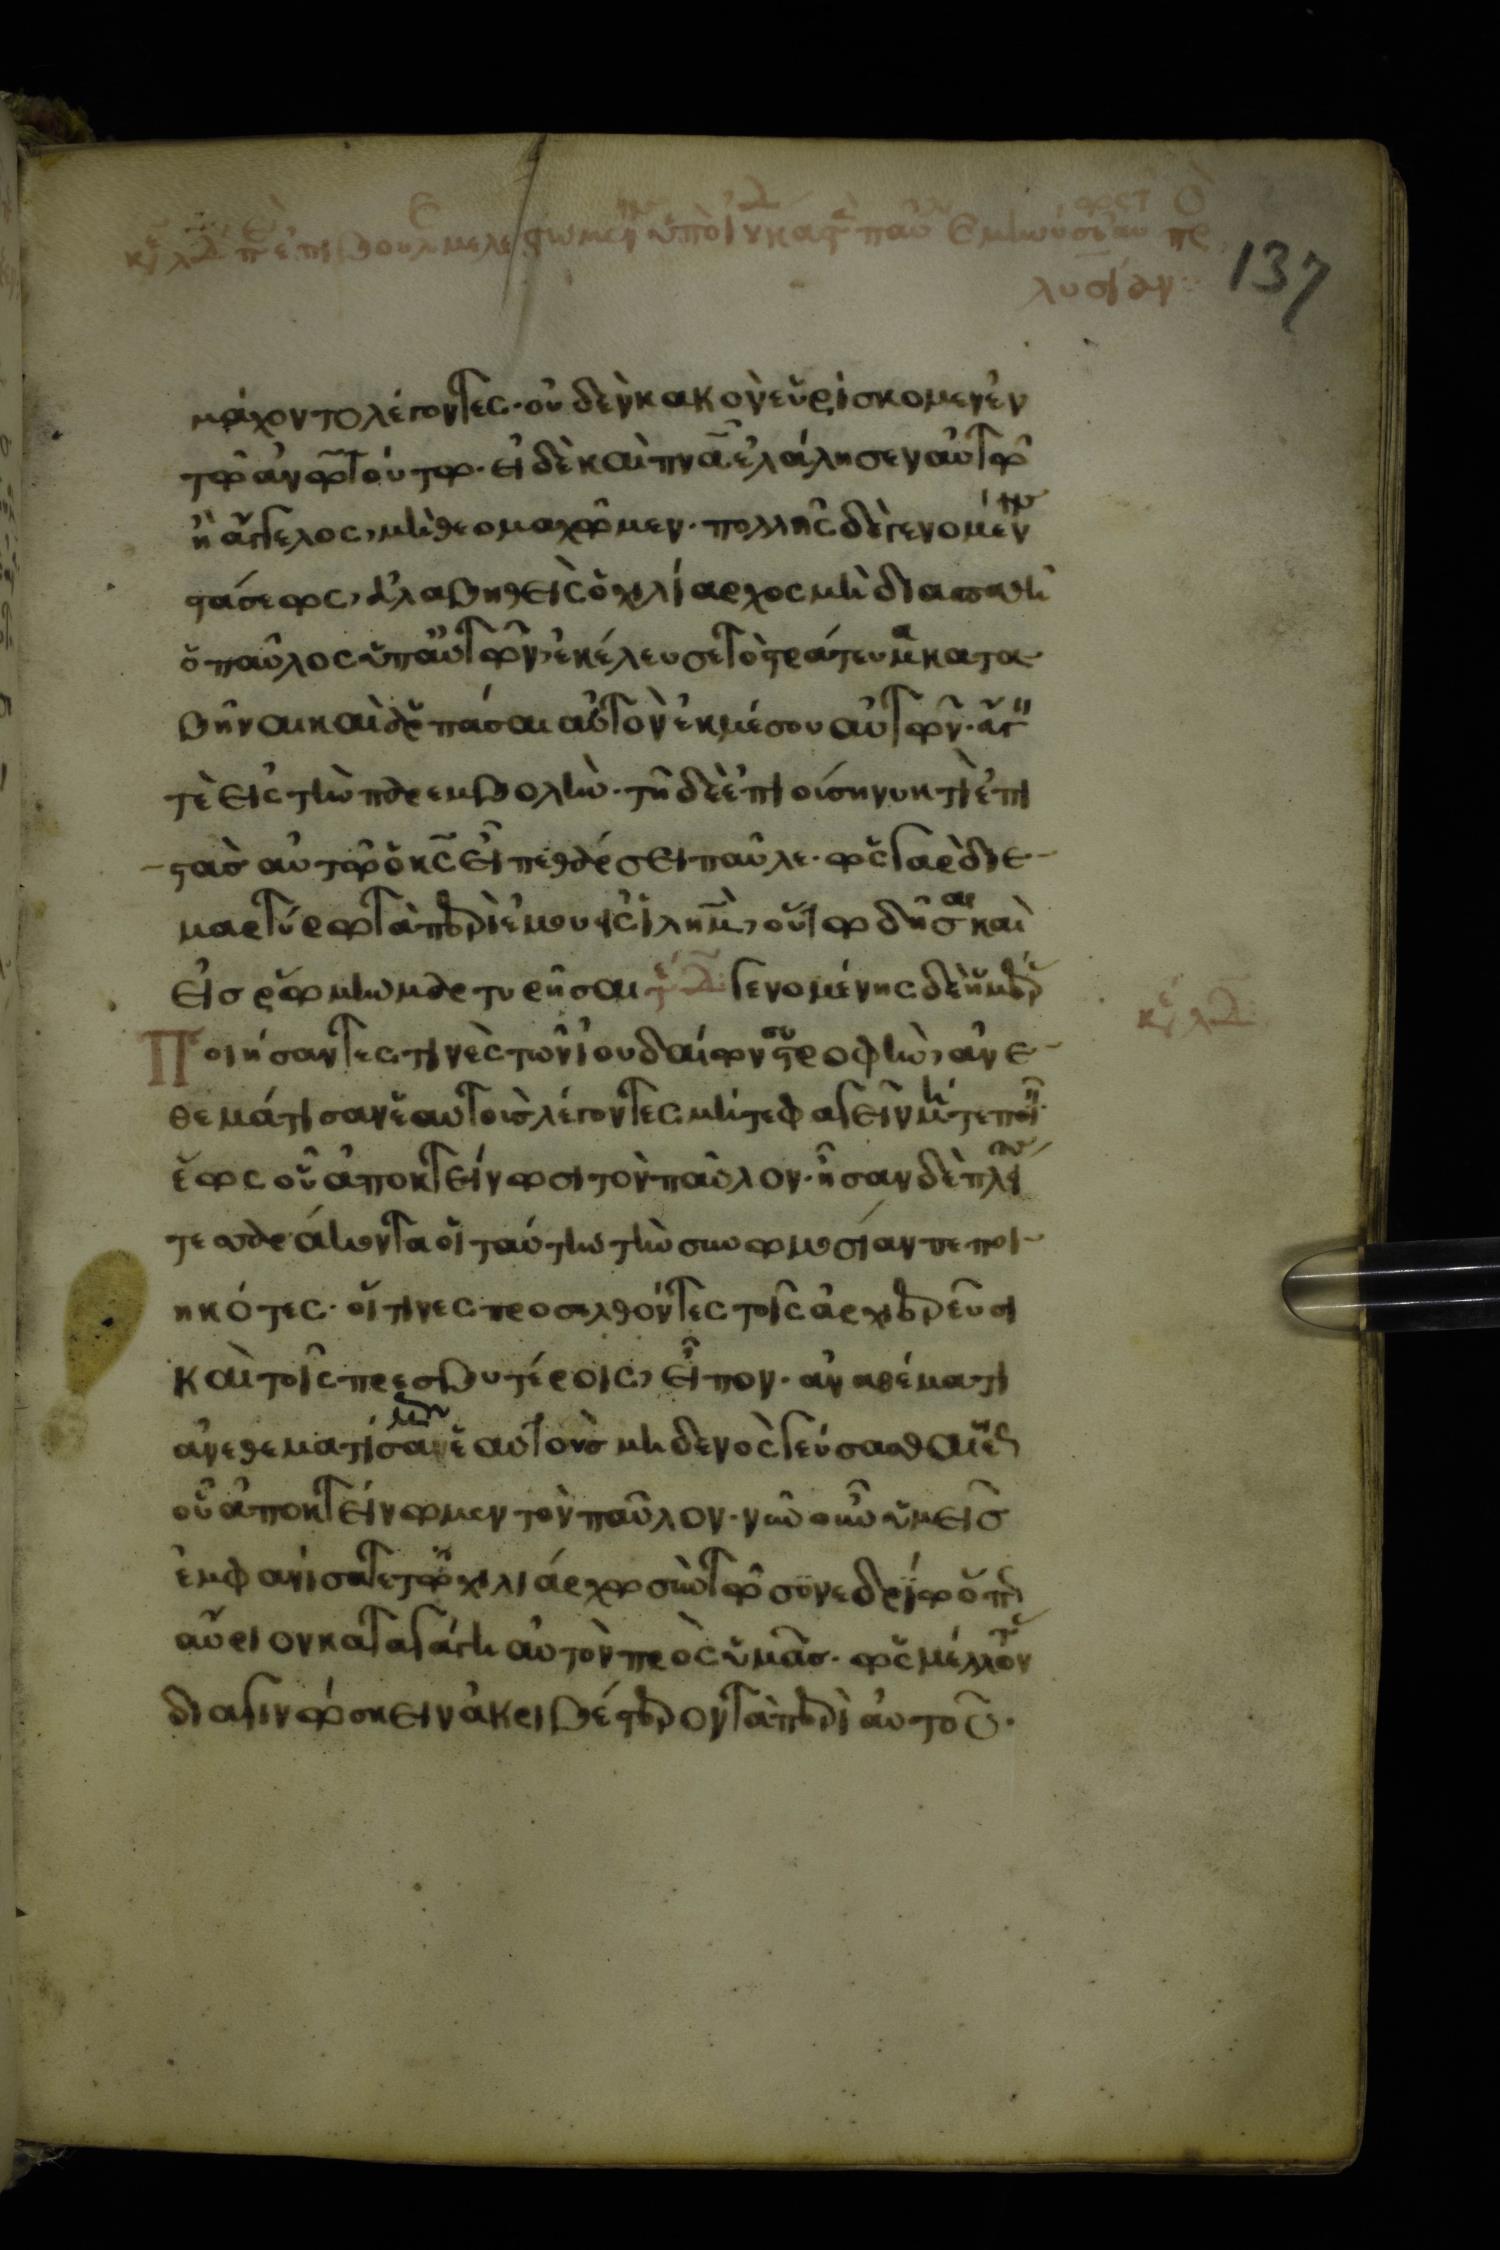 137
λυσίαν
μάχοντο λέγοντες· οὐδὲν κακὸν εὑρίσκομεν ἐν
τῶ ἀνω̅ τούτω· εἰ δὲ καὶ πνα̅ ἐλάλησεν αὐτῶ
ἢ ἄγγελος, μὴ θεομαχῶμεν· πολλῆς δὲ γενομένης
στάσεως, εὐλαβηθεὶς ὁ χιλίαρχος μὴ διασπασθῆ
ὁ παῦλος ὑπ' αὐτῶν, ἐκέλευσε τὸ στράτευμα κατα
βῆναι καὶ ἁρπάσαι αὐτὸν ἐκ μέσου αὐτῶν· ἄγειν
τὲ εἰς τὴν παρεμβολήν· τῆ δὲ ἐπιούση νυκτὶ ἐπι
στὰς αὐτῶ ὁ κς̅ εἶπε θάρσει παῦλε· ὡς γὰρ διε
μαρτύρω τὰ περὶ ἐμοῦ εἰς ἱλημ̅, οὕτω δεῖ σαι καὶ
εἰς ῥώμην μαρτυρῆσαι τέλ γενομένης δὲ ἡμέρ
Ποιήσαντες τινὲς τῶν ἰουδαίων συστροφὴν, ἀνε
θεμάτισαν ἑαυτοὺς λέγοντες μήτε φαγεῖν μήτε ποιεῖν
ἕως οὗ ἀποκτείνωσι τὸν παῦλον· ἦσαν δὲ πλείους
τεσσαράκοντα οἱ ταύτην τὴν συνωμοσίαν πεποι
ηκότες· οἵτινες προσελθόντες τοῖς ἀρχιερεῦσι
καὶ τοῖς πρεσβυτέροις, εἶπον· ἀναθέματι
ἀνεθεματίσαμεν ἑαυτοὺς μηδενὸς γεύσασθαι ἕως
οὗ ἀποκτείνωμεν τὸν παῦλον· νῦν οὖν ὑμεῖς
ἐμφανίσατε τῶ χιλιάρχω σὺν τῶ συνεδρίω ὅπως
αὔριον καταγάγη αὐτὸν πρὸς ὑμᾶς· ὡς μέλλοντας
διαγινώσκειν ἀκριβέστερον τὰ περὶ αὐτοῦ·